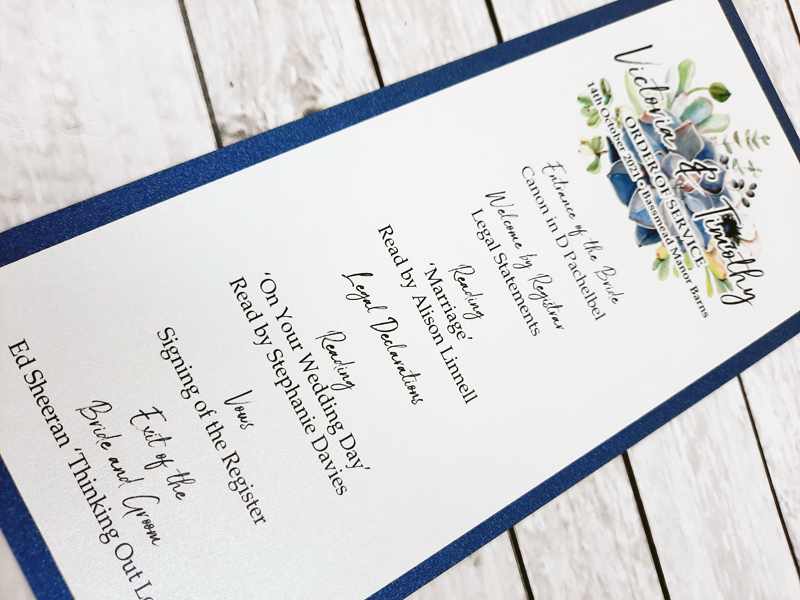 Victoria & Timothy
ORDER OF SERVICE
14th October 2021 • Bassmead Manor Barns
Entrance of the Bride
Canon in D Pachelbel
Welcome by Registrar
Legal Statements
Reading
'Marriage'
Read by Alison Linnell
Legal Declarations
Reading
'On Your Wedding Day'
Read by Stephanie Davies
Vows
Signing of the Register
Exit of the
Bride and Groom
Ed Sheeran 'Thinking Out